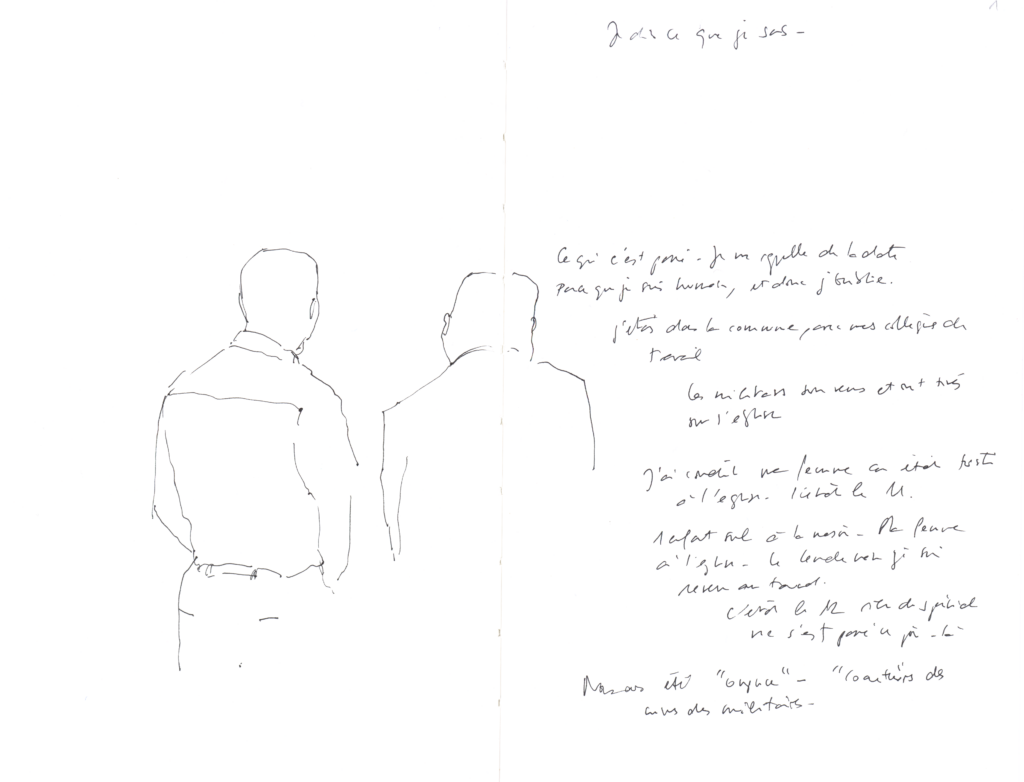 1
Je dis ce que je sais -
Ce qui s'est passé - Je me rappelle de la date
parce que je suis humain, et donc j'oublie.
j'étais dans la commune, avec mes collègues de
travail
Les militaires sont venus et ont tirés
sur l'église
J'ai ma femme en était
à l'église - C'était le 11.
1 enfant seul à la maison - Ma femme
à l'église - Le lendemain je suis
revenu au travail.
C'était le 12 rien de spécial
ne s'est passé ce jour-là
Nous avons été "
des militaires -